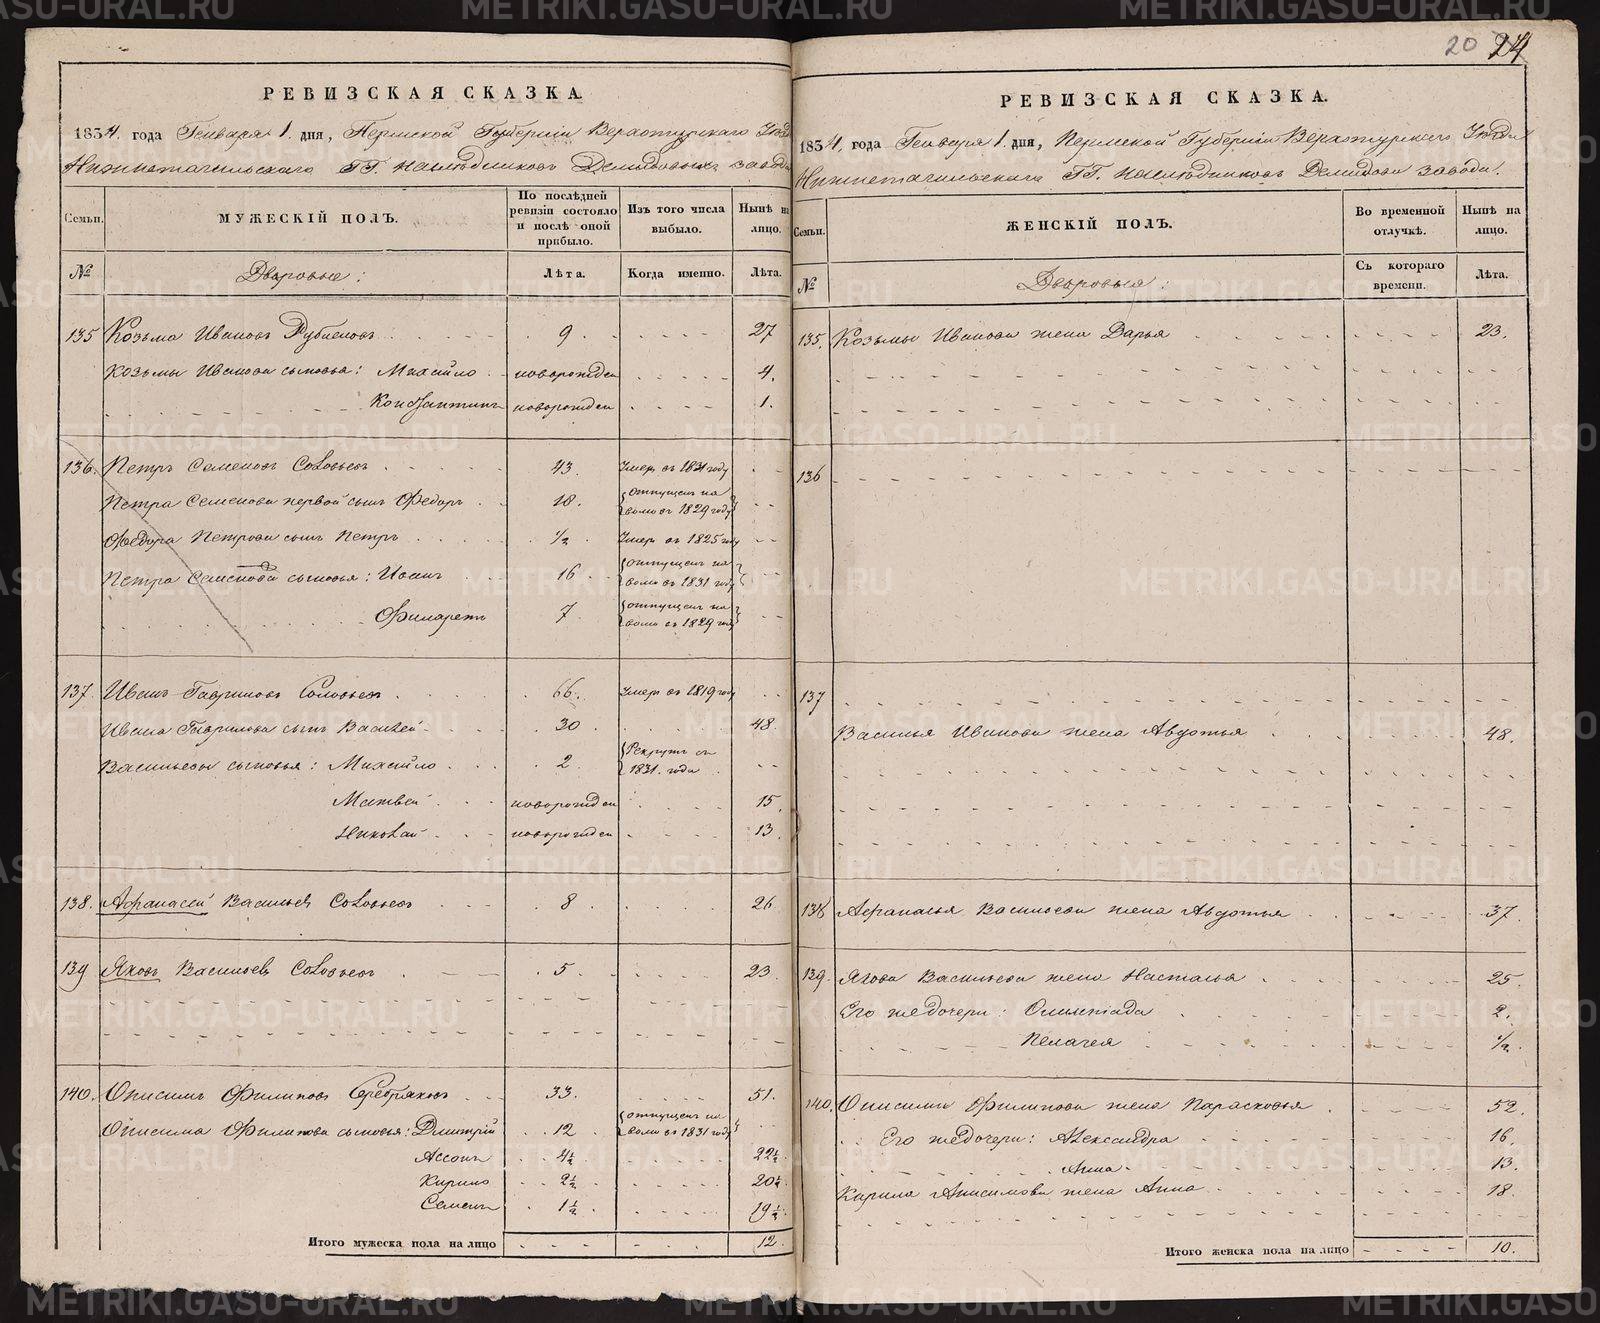 20 24
РЕВИЗСКАЯ СКАЗКА.
1834. года Генваря 1. дня, Пермской Губернiи Верхотурскаго Уѣзда
Нижнетагильскаго ГГ. наслѣдниковъ Демидовыхъ завода
Семьи. МУЖЕСКIЙ ПОЛЪ. По послѣдней ревизiи состояло и послѣ оной прибыло. Изъ того числа выбыло. Нынѣ на лицо.
№ Дворовые: Лѣта. Когда именно. Лѣта.
135 Козьма Ивановъ 9. 27
Козьмы Иванова сыновья: Михайло новорожден 4.
Константинъ новорожден 1.
136. Петръ Семеновъ Соловьевъ 43. Умеръ въ 1831 году
Петра Семенова первой сынъ Федоръ 18. отпущенъ на волю въ 1829 году
Федора Петрова сынъ Петръ 1/2 Умеръ въ 1825 году
Петра Семенова сыновья: Иванъ 16 отпущенъ на волю въ 1831 году
Филаретъ 7 отпущенъ на волю въ 1829 году
137. Иванъ Гавриловъ Соловьевъ 66. Умеръ въ 1819 году
Ивана Гаврилова сынъ Василей 30 48
Васильевы сыновья: Михайло 2 Рекрутъ съ 1831. года
Матвей новорожден 15.
Николай новорожден 13.
138. Афанасей Васильевъ Соловьевъ 8. 26
139 Яковъ Васильевъ Соловьевъ 5. 23
140. Онисимъ Филиповъ Серебряковъ 33. 51.
Онисима Филипова сыновья: Дмитрiй 12 отпущенъ на волю въ 1831 году
Ассонъ 4 1/2 22 1/2
Кирило 2 1/2 20 1/2
Семенъ 1 1/2 19 1/2
Итого мужеска пола на лицо 12.
РЕВИЗСКАЯ СКАЗКА.
1834. года Генваря 1. дня, Пермской Губернiи Верхотурскаго Уѣзда
Нижнетагильскаго ГГ. наслѣдниковъ Демидовы завода.
Семьи. ЖЕНСКIЙ ПОЛЪ. Во временной отлучкѣ. Нынѣ на лицо.
№ Дворовыя: Съ котораго времени. Лѣта.
135. Козьмы Иванова жена Дарья 23.
136
137
Василья Иванова жена Авдотья 48.
138 Афанасья Васильева жена Авдотья 37.
139. Якова Васильева жена Настасья 25.
Его же дочери: Олимпiада 2.
Пелагея 1/2.
140. Онисима Филипова жена Парасковья 52.
Его же дочери: Александра 16.
Анна 13.
Кирила Анисимова жена Анна 18.
Итого женска пола на лицо 10.
METRIKI.GASO-URAL.RU